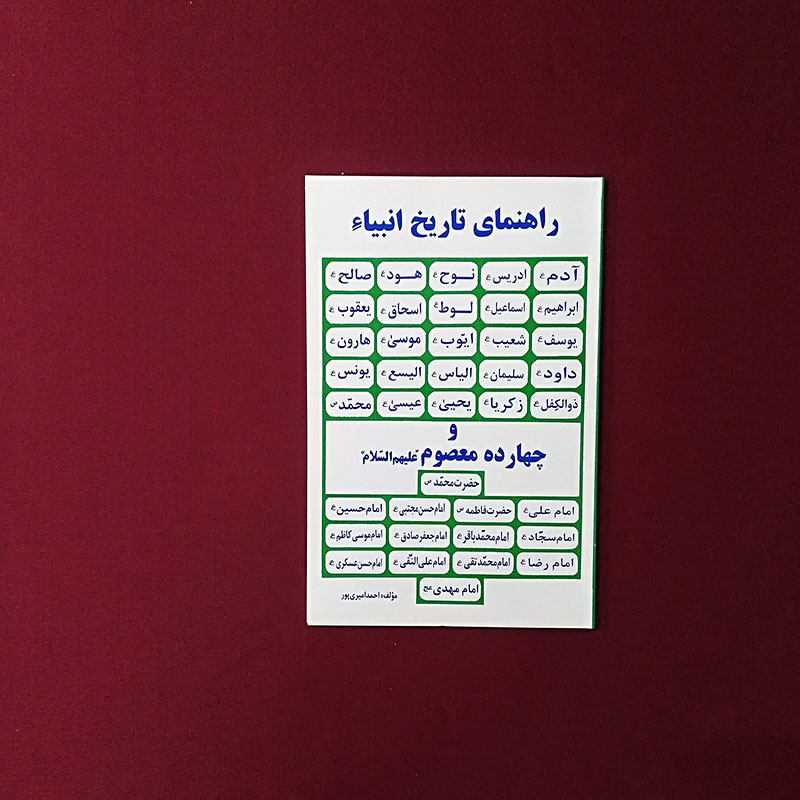 راهنمای تاریخ انبیاءِ
آدم ع ادریس ع نوح ع هود ع صالح ع
ابراهیم ع اسماعیل ع لوط ع اسحاق ع یعقوب ع
یوسف ع شعیب ع ایّوب ع موسیٰ ع هارون ع
داود ع سلیمان ع الیاس ع الیسع ع یونس ع
ذوالکِفل ع زکریا ع یحییٰ ع عیسیٰ ع محمّد ص
و
چهارده معصوم علیهم السّلام
حضرت محمّد ص
امام علی ع حضرت فاطمه س امام حسن مجتبی ع امام حسین ع
امام سجّاد ع امام محمّد باقر ع امام جعفر صادق ع امام موسی کاظم ع
امام رضا ع امام محمّد تقی ع امام علی النّقی ع امام حسن عسکری ع
امام مهدی عج
مؤلف: احمد امیری پور